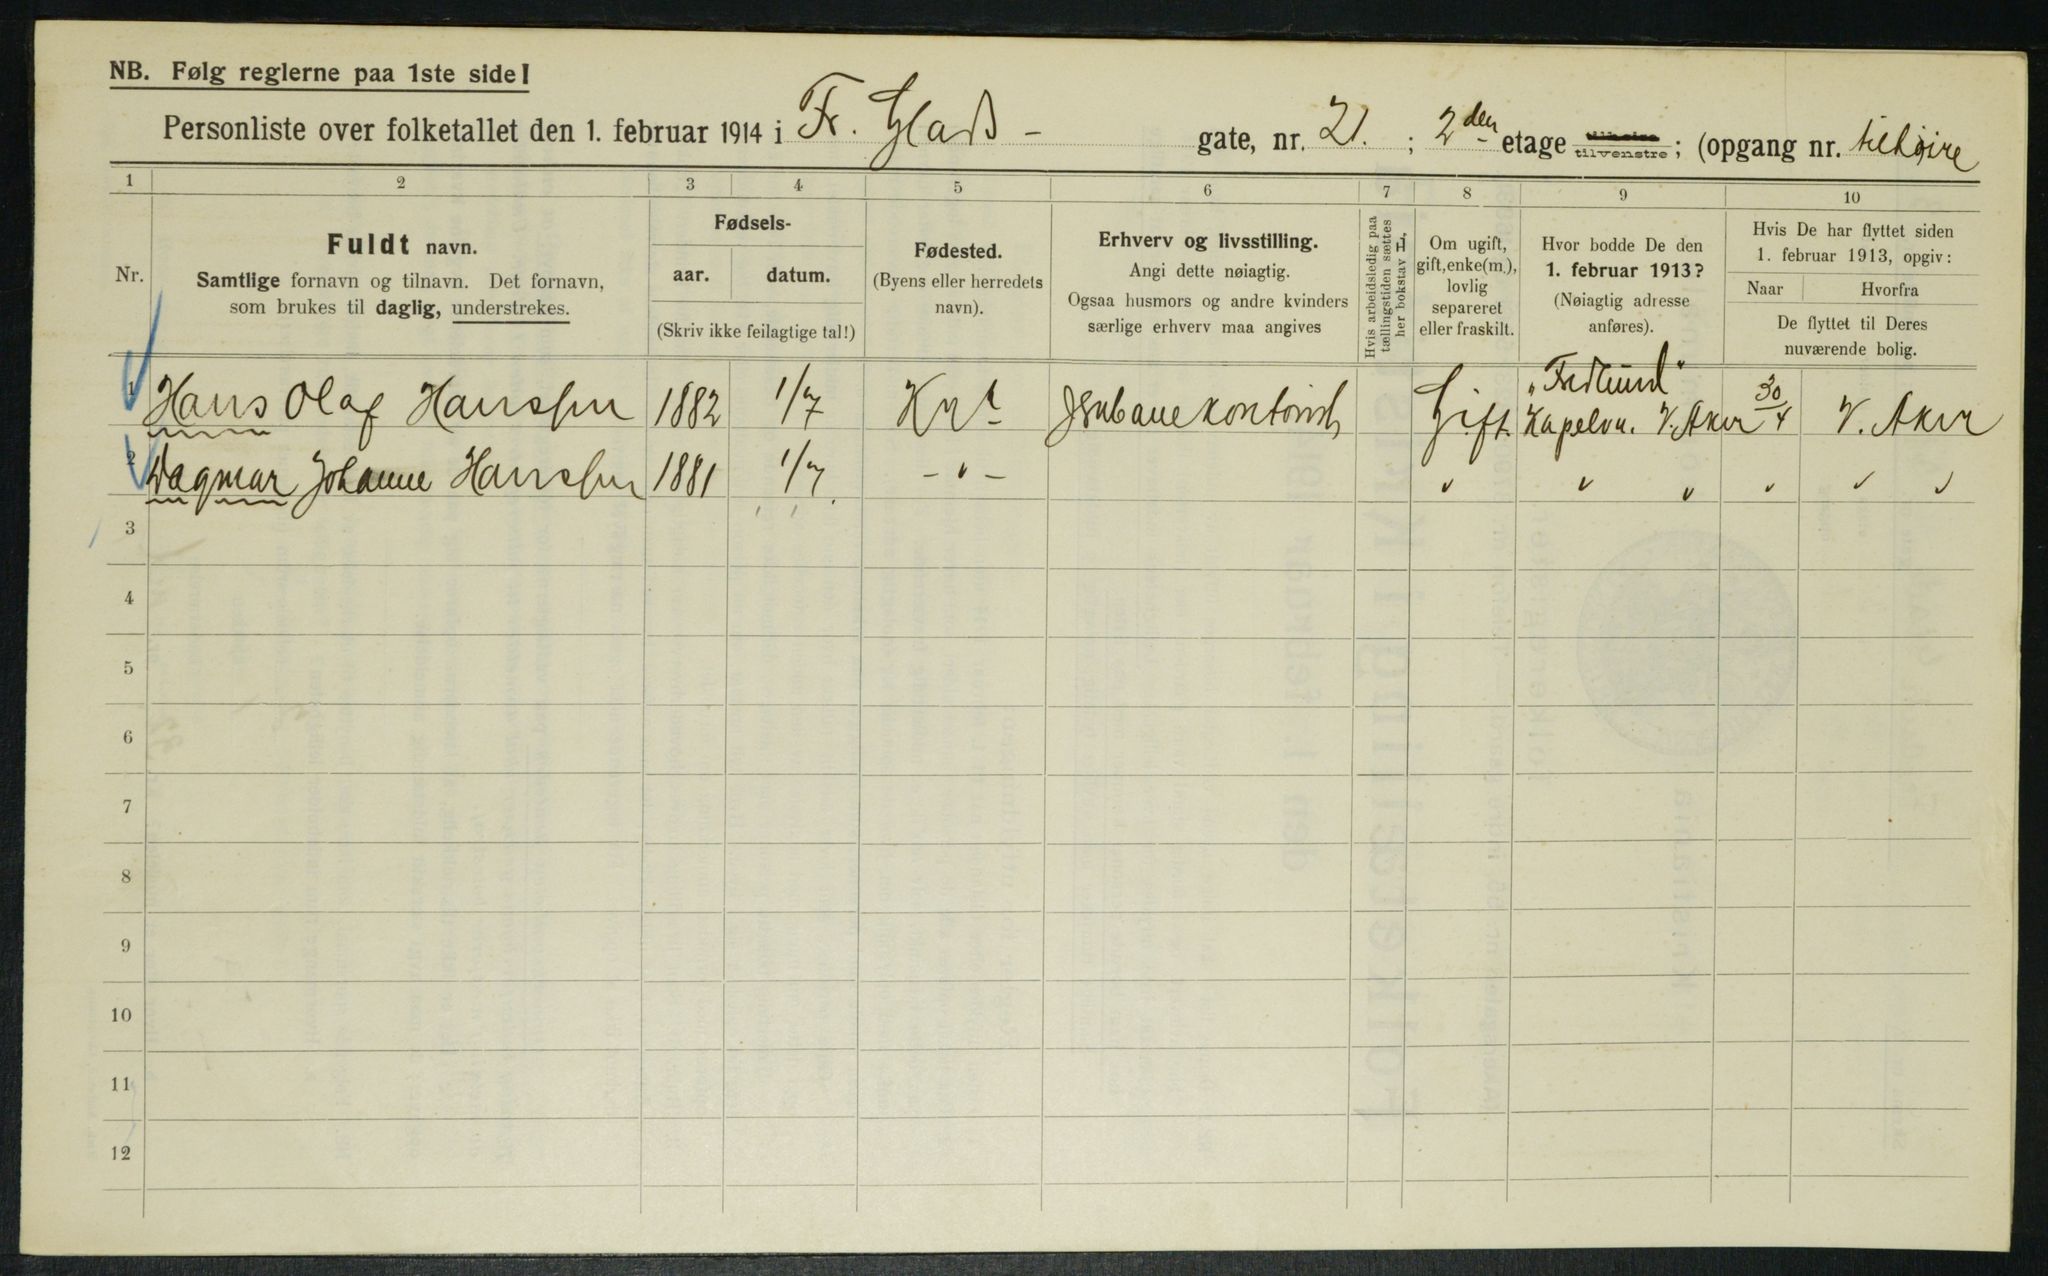 NB. Følg reglerne paa 1ste side!
Personliste over folketallet den 1. februar 1914 i Fr. Glads - gate, nr. 21. ; 2den etage tilhøire tilvenstre ; (opgang nr. tilhøire
1 2 3 4 5 6 7 8 9 10
Nr.
Fuldt navn.
Samtlige fornavn og tilnavn. Det fornavn,
som brukes til daglig, understrekes.
Fødsels-
aar. datum.
(Skriv ikke feilagtige tal!)
Fødested.
(Byens eller herredets
navn).
Erhverv og livsstilling.
Angi dette nøiagtig.
Ogsaa husmors og andre kvinders
særlige erhverv maa angives
Hvis arbeidsledig paa
tællingstiden sættes
her bokstav L,
Om ugift,
gift, enke(m.),
lovlig
separeret
eller fraskilt.
Hvor bodde De den
1. februar 1913?
(Nøiagtig adresse
anføres).
Hvis De har flyttet siden
1. februar 1913, opgiv:
Naar Hvorfra
De flyttet til Deres
nuværende bolig.
1 Hans Olaf Hanssen 1882 1/7 Kra Jernbanekontorist Gift. "Fredlund" Kapelvn. V. Aker 30/4 V. Aker
2 Dagmar Johanne Hanssen 1881 1/7. - " - " " " " " "
3
4
5
6
7
8
9
10
11
12